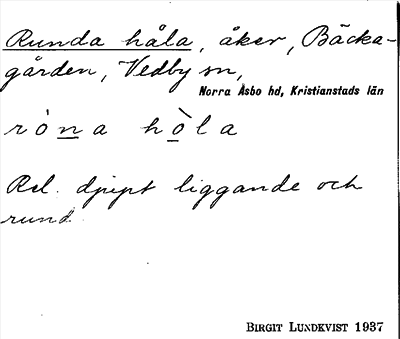 Runda håla, åker, Bäcka-
gården, Vedby sn,
Norra Åsbo hd, Kristianstads län
ròna hòla
Rel. djupt liggande och
rund.
BIRGIT LUNDKVIST 1937